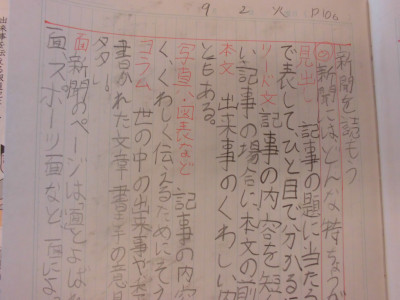 9 2 火 P106
新聞を読もう
新聞にはどんな特ちょうが
見出し 記事の題に当たる
で表して、ひと目で分かる
リード文 記事の内容を短
い記事の場合に本文の前
本文 出来事のくわしい内
ともある。
写真・図表など 記事の内容
く、くわしく伝えるためにそえ
コラム 世の中の出来事や
書かれた文章 書き手の意見
面 新聞のページは、面とよばれ
面、スポーツ面など、面によ